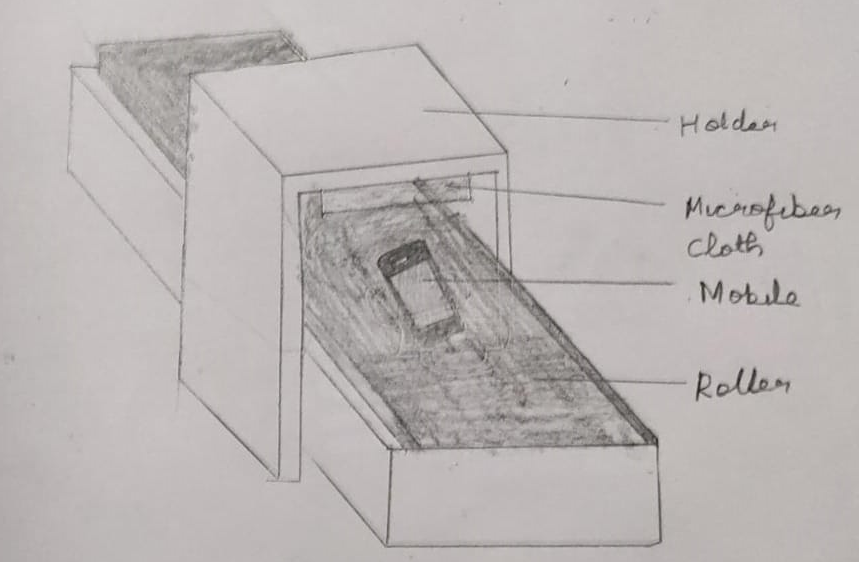 Holder
Microfiber
Cloth
Mobile
Roller